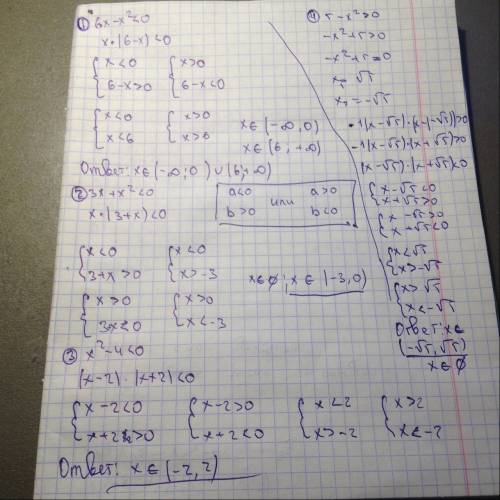 ① 6x-x²<0
x·(6-x)<0
{x<0 {x>0
{6-x>0 {6-x<0
{x<0 {x>0
{x<6 {x>6
x∈(-∞,0)
x∈(6;+∞)
Ответ: x∈(-∞;0)∪(6;+∞)
② 3x+x²<0
x·(3+x)<0
a<0 или a>0
b>0 b<0
{x<0 {x<0
{3+x>0 {x>-3
x∈∅; x∈(-3,0)
{x>0 {x>0
{3x<0 {x<-3
③ x²-4<0
(x-2)·(x+2)<0
{x-2<0 {x-2>0 {x<2 {x>2
{x+2>0 {x+2<0 {x>-2 {x<-2
Ответ: x∈(-2,2)
④ 5-x²>0
-x²+5>0
-x²+5=0
x=√5
x=-√5
-1(x-√5)·(x-(-√5))>0
-1(x-√5)·(x+√5)>0
(x-√5)·(x+√5)<0
{x-√5<0
{x+√5>0
{x-√5>0
{x+√5<0
{x<√5
{x>-√5
{x>√5
{x<-√5
Ответ: x∈
(-√5,√5)
x∈∅